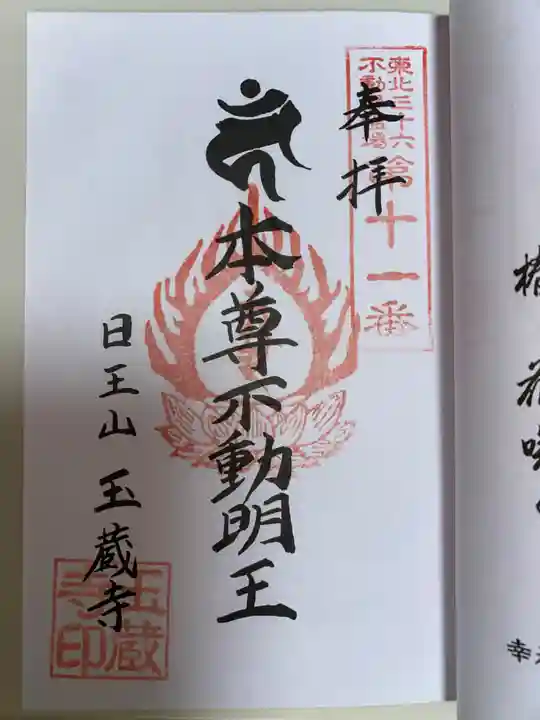 東北三十六
不動尊霊場
第十一番
奉拝
本尊不動明王
日王山 玉蔵寺
玉蔵
寺印